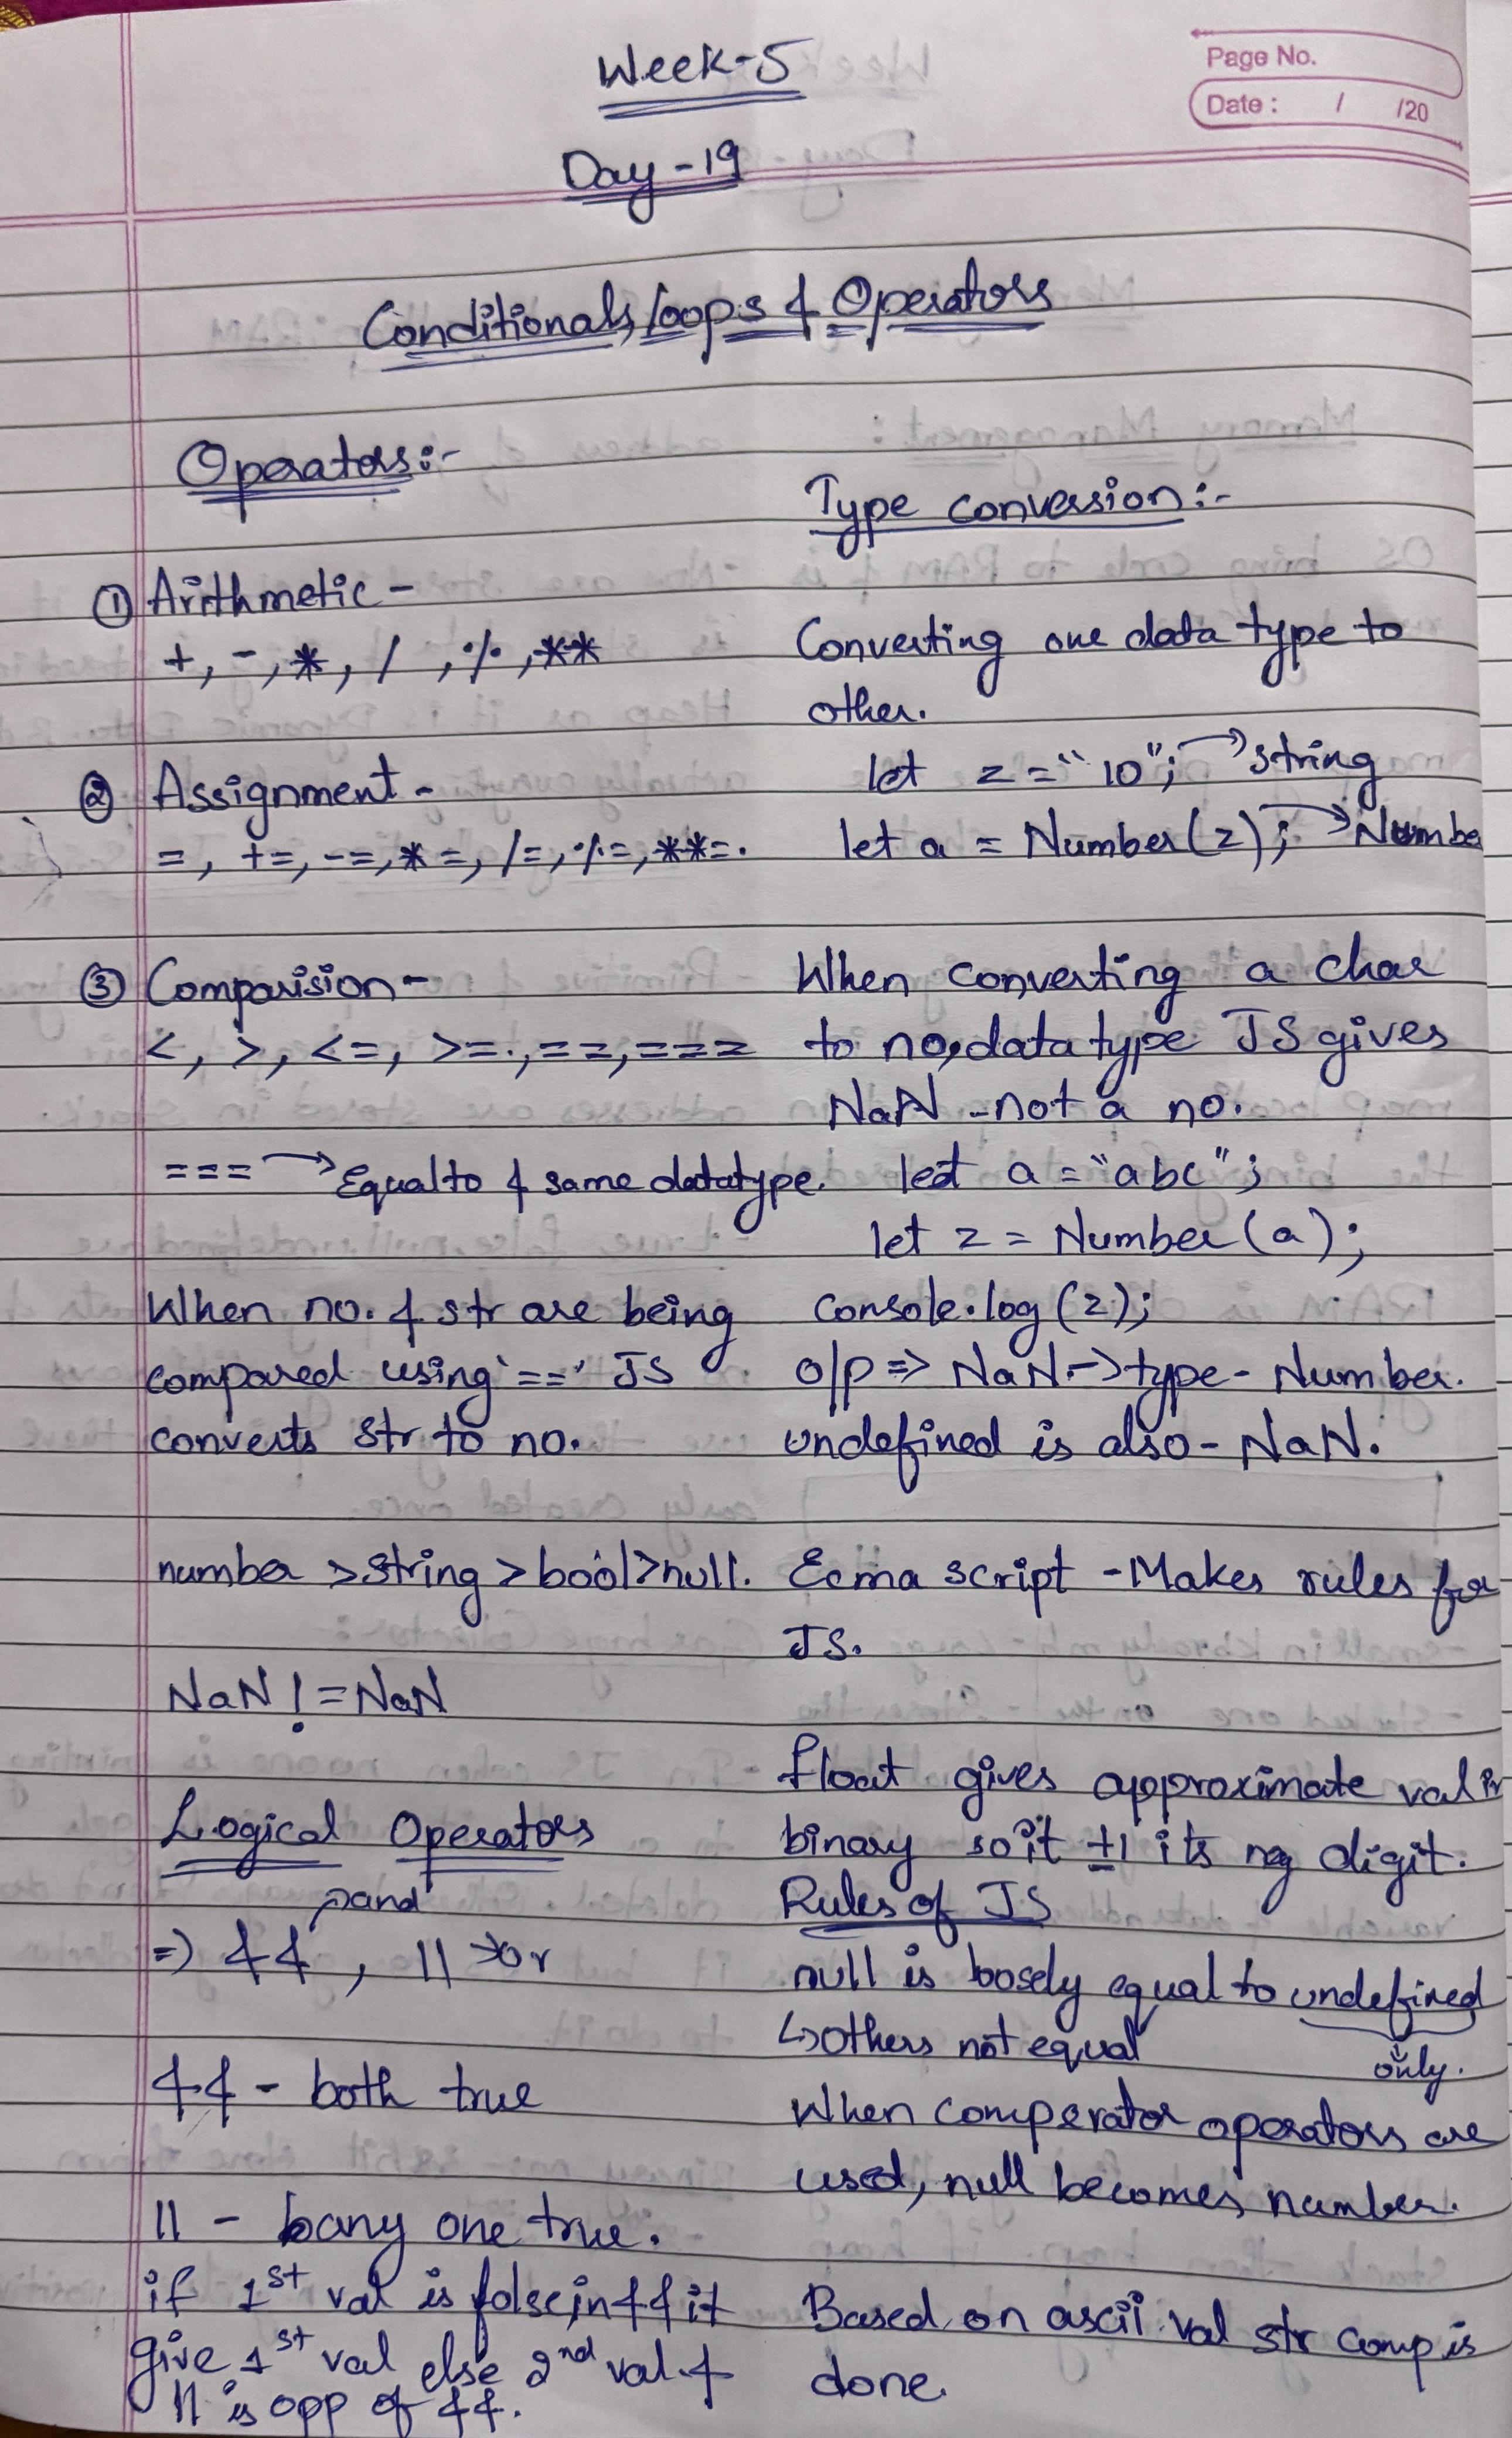 Page No.
Date : / /20
Week-5
Day-19
Conditionals, loops & Operators
Operators:-
① Arithmetic -
+, -, *, /, %, **
② Assignment -
=, +=, -=, *=, /=, %=, **=.
③ Comparision -
<, >, <=, >=, ==, ===
=== → Equal to & same datatype.
When no. & str are being
compared using '==' JS
converts str to no.
number > string > bool > null.
NaN != NaN
Logical Operators
and
=> &&, || → or
&& - both true
|| - any one true.
if 1st val is false, in && it
give 1st val else 2nd val. &
|| is opp of &&.
Type conversion:-
Converting one data type to
other.
let z = "10"; → string
let a = Number(z); → Numbe
When converting a char
to no. data type JS gives
NaN - not a no.
let a = "abc";
let z = Number(a);
console.log(z);
o/p => NaN. → type - Number.
undefined is also - NaN.
Ecma script - Makes rules for
JS.
float gives approximate val in
binary so it ±1 its digit.
Rules of JS
null is loosely equal to undefined
↳ others not equal
only.
When comperator operators are
used, null becomes number.
Based on ascii val str comp is
done.